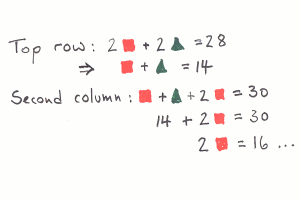 Top row: 2 🟥 + 2 ▲ = 28
⇒ 🟥 + ▲ = 14
Second column: 🟥 + ▲ + 2 🟥 = 30
14 + 2 🟥 = 30
2 🟥 = 16 ...